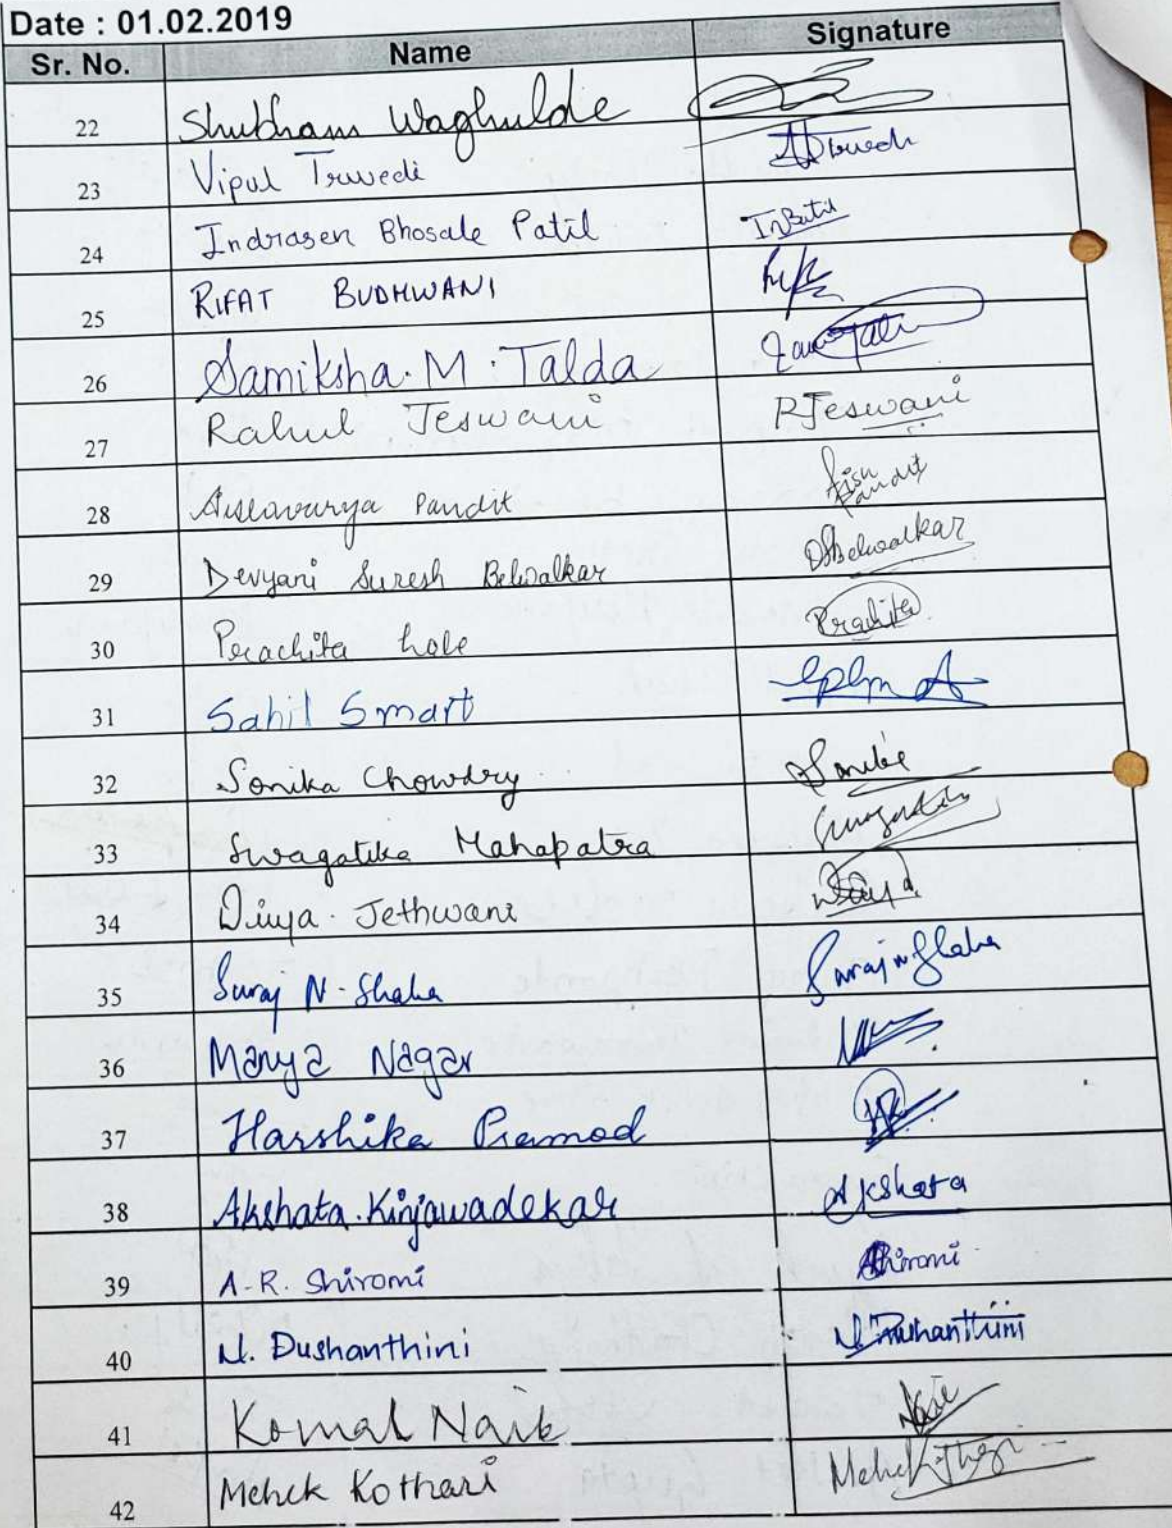 Date : 01.02.2019
Sr. No. Name Signature
22 Shubham Waghulde
23 Vipul Trivedi
24 Indrasen Bhosale Patil
25 RIFAT BUDHWANI
26 Samiksha. M. Talda
27 Rahul Jeswani RJeswani
28 Aishwarya Pandit Aish
Pandit
29 Devyani Suresh Belwalkar DSBelwalkar
30 Prachita hole Prachita
31 Sahil Smart
32 Sonika Chowdry
33 Swagatika Mahapatra
34 Divya. Jethwani
35 Suraj N. Shaha Suraj N Shaha
36 Manya Nagar
37 Harshika Pramod
38 Akshata. Kinjawadekar Akshata
39 A.R. Shiromi Shiromi
40 N. Dushanthini N. Dushanthini
41 Komal Naik Naik
42 Mehek Kothari Mehek Kothari